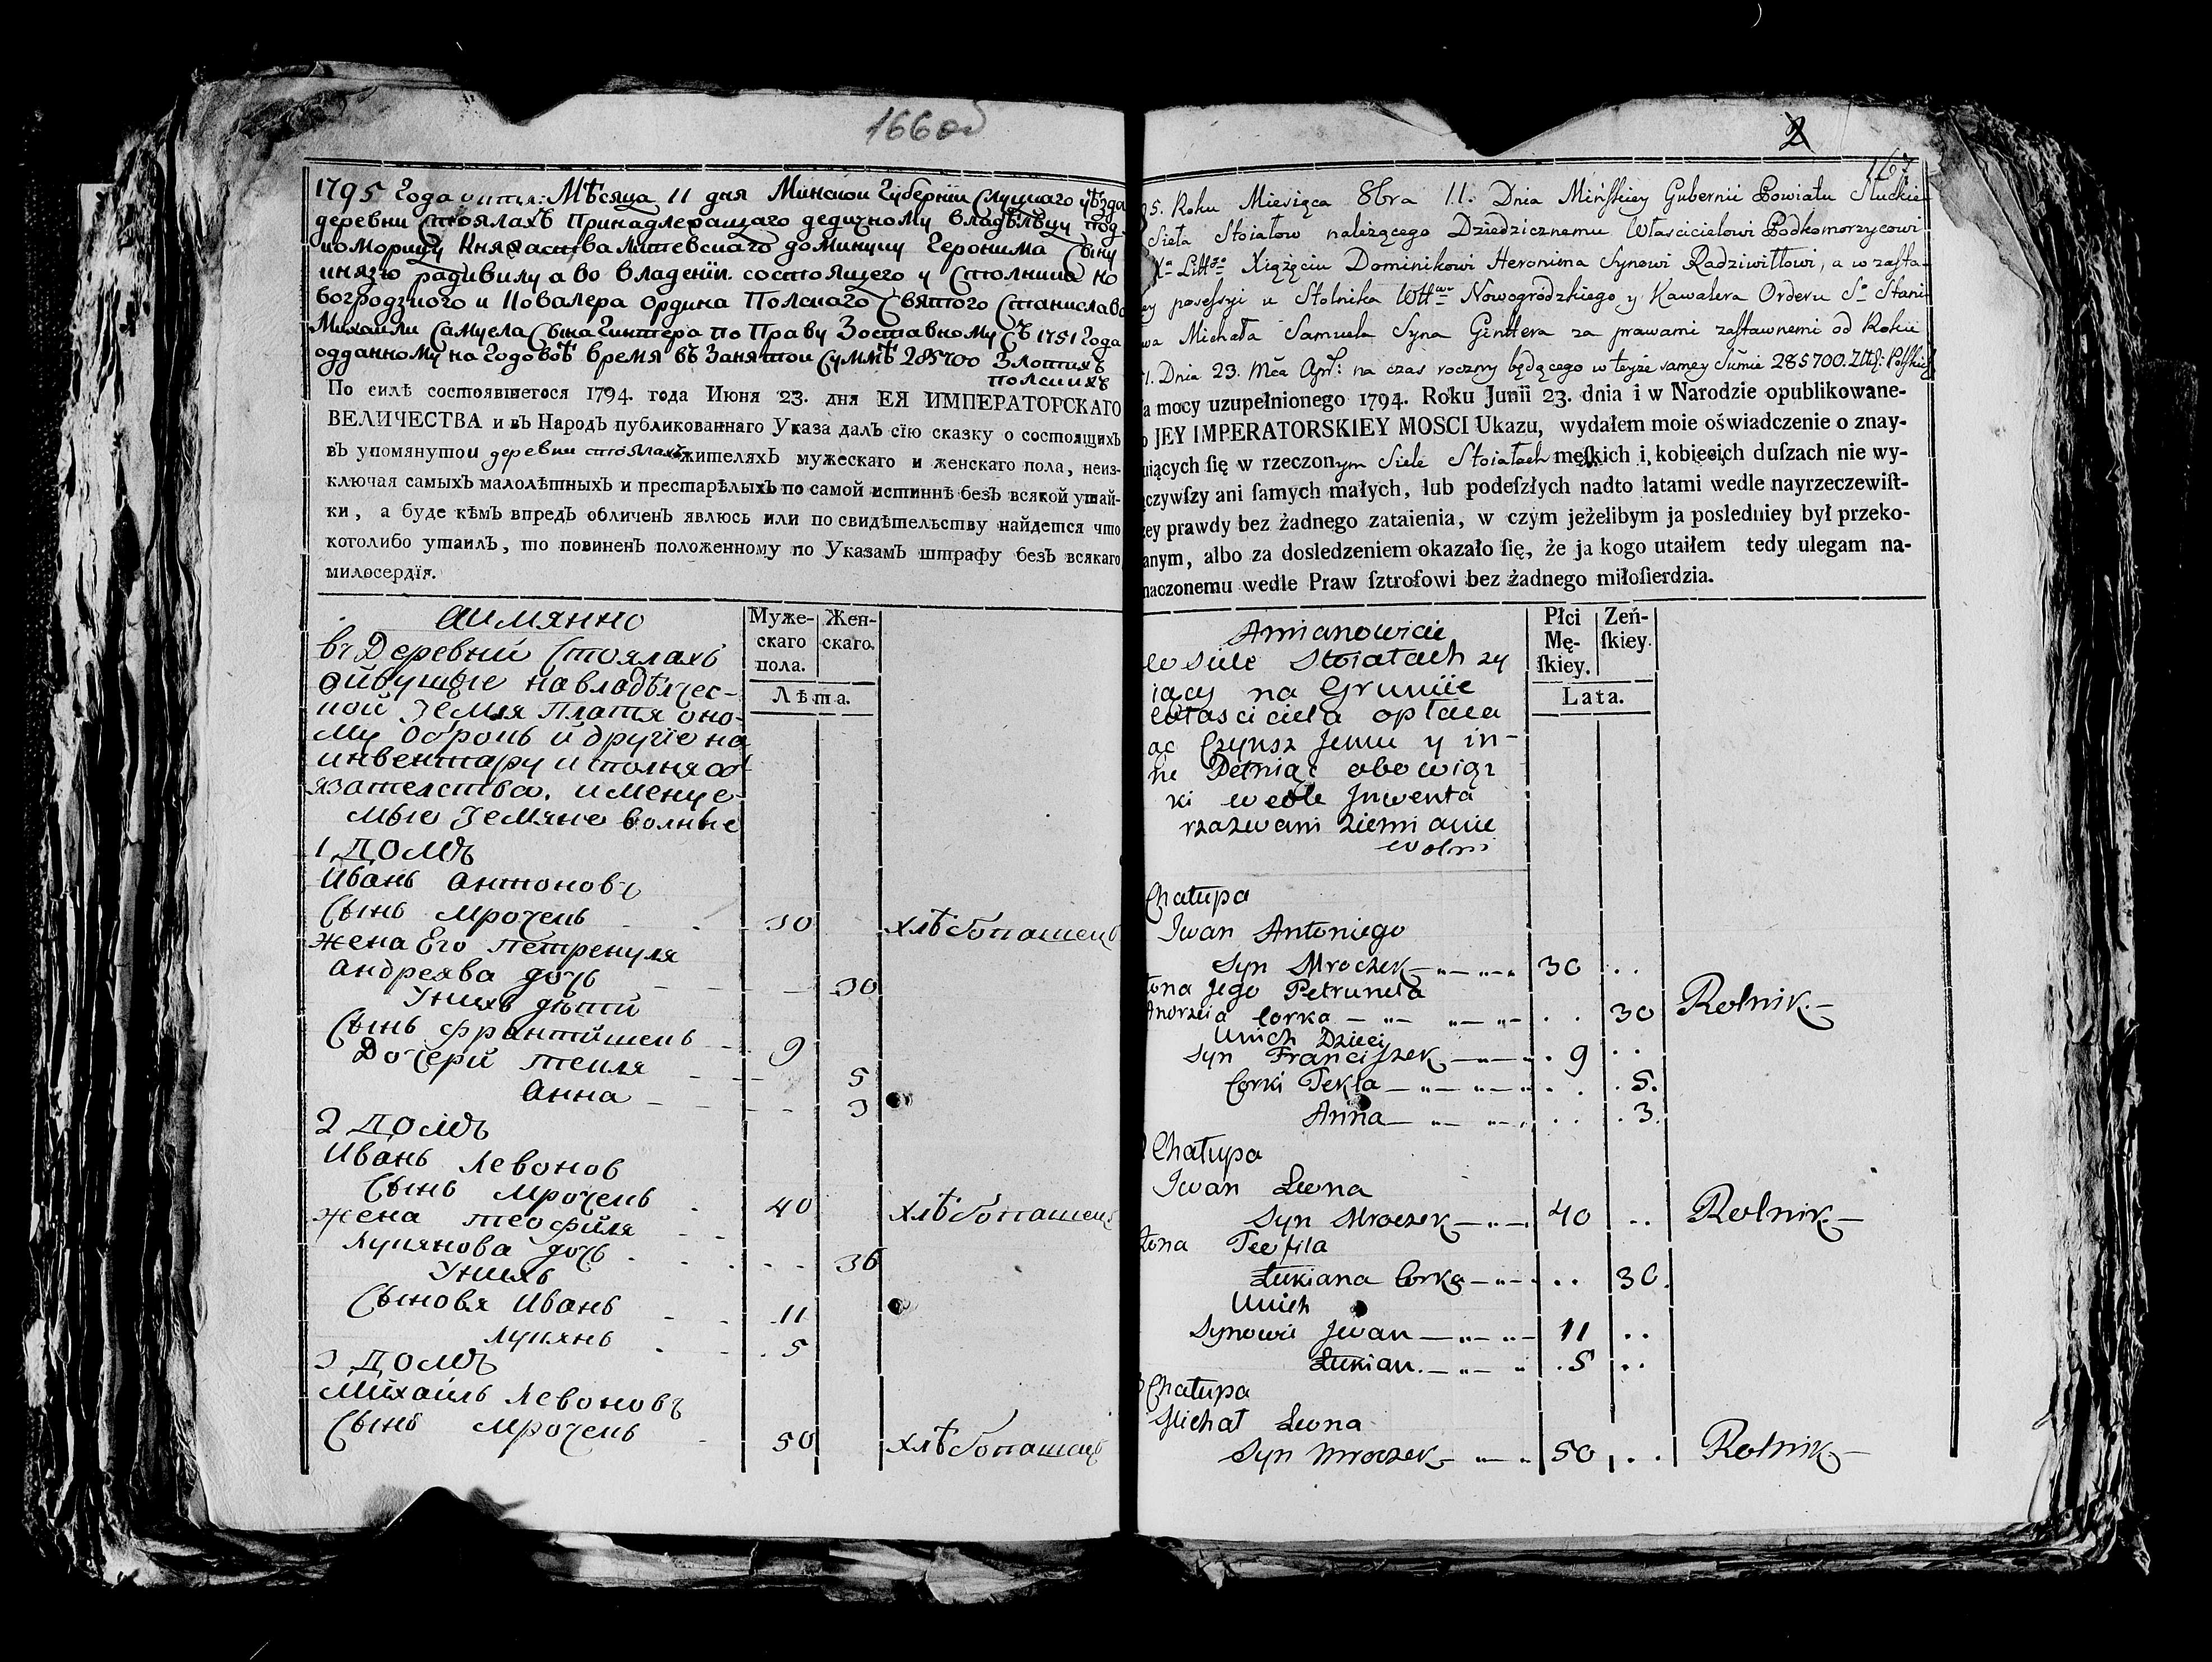 166об
1795 Года октя: Мѣсяца 11 дня Минской Губернїи Слуцкаго уѣзда
деревни Стоялахъ Принадлежащаго дедичному Владѣльцу Под-
коморицу Княжества Литевскаго доминику Геронима Сыну
князю радивилу а во владенїи состоящего у Столника но
вогродзкого и Ковалера ордина Полскаго Святого Станислава
Михаили Самуела Сына Гинтера по Праву Зоставному Съ 1751 Года
одданному на Годовоѣ время въ Занятои Суммѣ 285700 Злотихъ
полскихъ
По силѣ состоявшегося 1794. года Июня 23. дня ЕЯ ИМПЕРАТОРСКАГО
ВЕЛИЧЕСТВА и въ Народъ публикованнаго Указа далъ сїю сказку о состоящихъ
въ упомянутои деревни стоялахъ жителяхъ мужескаго и женскаго пола, неиз-
ключая самыхъ малолѣтныхъ и престарѣлыхъ по самой истиннѣ безъ всякой утай-
ки, а буде кѣмъ впредъ обличенъ явлюсь или по свидѣтельству найдется что
котолибо утаилъ, то повиненъ положенному по Указамъ штрафу безъ всякаго
милосердїя.
аимянно
Муже-
скаго
пола.
Жен-
скаго.
Лѣта.
въ Деревни Стоялахъ
живущие на владѣлчес-
кой Земля Платя оно-
му оброкъ и другие на
инвентару исполняя об
язателства. именуе-
мые Земяне волные
1 ДОМЪ
Иванъ Антоновъ
Сынъ Мрочекъ 30 хлѣбопашецъ
жена Его петренуля
андреява дочь 30
Унихъ дѣти
Сынъ Франтишекъ 9
Дочери текля 5
Анна 3
2 ДОМЪ
Иванъ Левонов
Сынъ Мрочекъ 40 хлѣбопашецъ
жена теофиля
Лукянова дочь 36
Унихъ
Сыновя Иванъ 11
Лукянъ 5
3 ДОМЪ
Михайлъ Левоновъ
Сынъ Мрочекъ 50 хлѣбопашецъ
2
167
95. Roku Miesiąca 8bra 11. Dnia Mińskiey Gubernii Powiatu Słuckie
Sieła Stoiałow należącego Dziedzicznemu Włascicielowi Podkomorzycowi
Xa Litt:go Xiążęciu Dominikowi Heronima Synowi Radziwiłłowi, a w zasta-
ey posessyi u Stolnika Wttwa Nowogrodzkiego y Kawalera Orderu Sgo Stani
wa Michała Samuela Syna Ginttera za prawami zastawnemi od Roku
1. Dnia 23. Mca Apr: na czas roczny będącego w teyże samey Summie 285700. Złt: Polskich
a mocy uzupełnionego 1794. Roku Junii 23. dnia i w Narodzie opublikowane-
o JEY IMPERATORSKIEY MOSCI Ukazu, wydałem moie oświadczenie o znay-
uiących się w rzeczonym Siele Stoiałach męskich i kobiecich duszach nie wy-
ączywszy ani samych małych, lub podeszłych nadto latami wedle nayrzeczewist-
zey prawdy bez żadnego zataienia, w czym jeżelibym ja posledniey był przeko-
anym, albo za dosledzeniem okazało się, że ja kogo utaiłem tedy ulegam na-
naczonemu wedle Praw sztrofowi bez żadnego miłosierdzia.
Amianowicie
Płci
Mę-
skiey.
Zeń-
skiey.
Lata.
w Siele Stoiałach zy
iący na Gruncie
własciciela opłaca
ąc Czynsz Jemu y in-
ne Pełniąc obowiąz
ki wedle Jnwenta
rza zwani ziemianie
wolni
Chałupa
Jwan Antoniego
Syn Mroczek 30
Żona Jego Petrunela
Andrzeia Corka 30 Rolnik
Unich Dzieci
Syn Franciszek 9
Corki Tekla 5.
Anna 3.
Chałupa
Jwan Leona
Syn Mroczek 40 Rolnik
Żona Teofila
Łukiana Corka 30.
Unich
Synowie Jwan 11
Łukian. 5
3 Chałupa
Michał Leona
Syn Mroczek 50 Rolnik